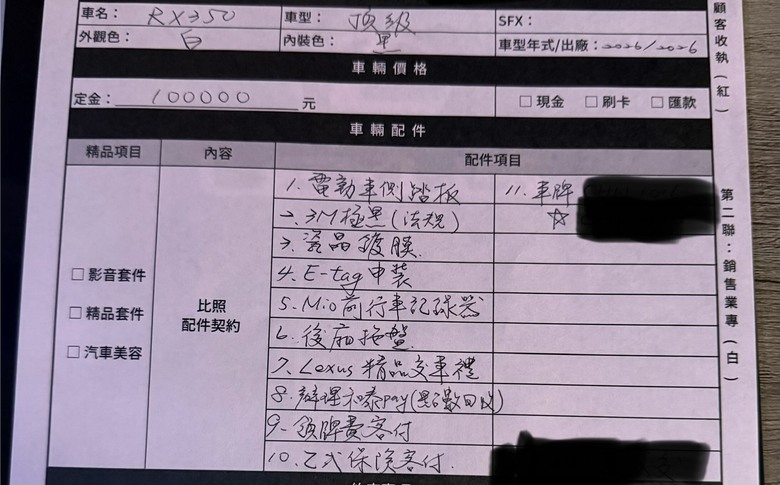 車名：RX350 車型：頂級 SFX：
外觀色：白 內裝色：黑 車型年式/出廠：2026/2026
車輛價格
定金：100000元 □現金 □刷卡 □匯款
車輛配件
精品項目 內容 配件項目
1. 電動車側踏板 11. 車牌
2. 3M極黑(法規) ☆
3. 瓷晶鍍膜
□影音套件 4. E-tag申裝
比照 5. Mio前行車記錄器
□精品套件 配件契約 6. 後廂拖盤
□汽車美容 7. Lexus精品交車禮
8. 辦理和泰pay(點數回饋)
9. 領牌費客付
10. 乙式保險客付.
顧客收執(紅)
第二聯：銷售業專(白)